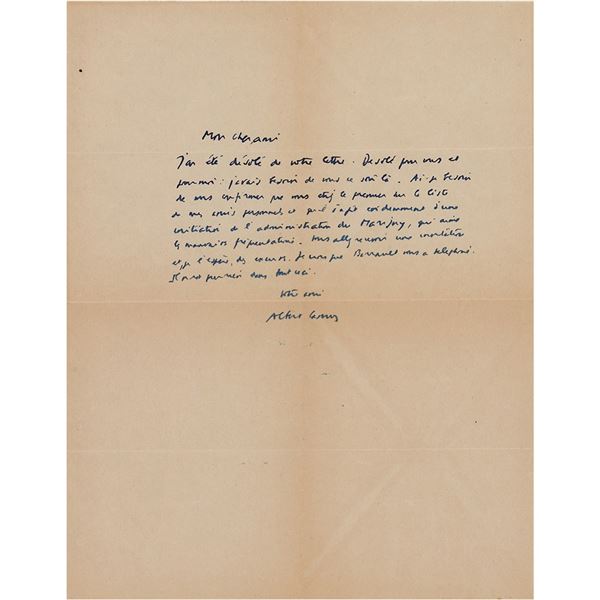 Mon cher ami
J'ai été désolé de votre lettre. Désolé pour vous et
pour moi : j'avais besoin de vous ce soir là. Ai-je besoin
de vous confirmer que vous étiez le premier sur la liste
de mes amis personnels, et qu'il s'agit évidemment d'une
de l'administration du Marigny, qui
le mauvais. Vous allez recevoir une invitation
et, je l'espère, des excuses. Je crois que Barrault vous a téléphoné.
Il n'est pour rien dans tout ceci.
Votre ami
Albert Camus